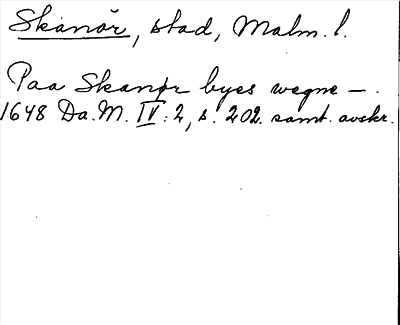 Skanör, stad, Malm. l.
Paa Skanør byes wegne —.
1648 Da. M. IV: 2, s. 202. samt. avskr.